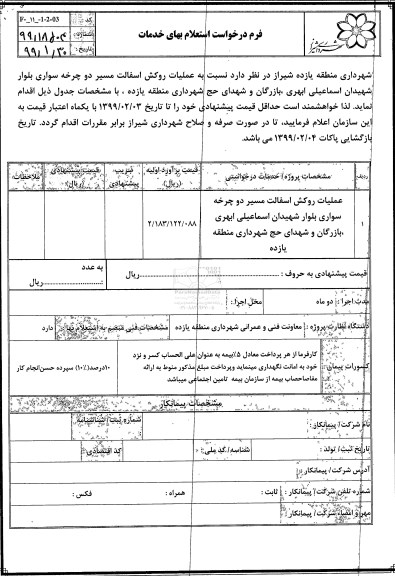 فرم درخواست استعلام بهای خدمات
کد : F۰_۱۱_۰۱-2-03
شماره : ۹۹/۱۸۰۴
تاریخ : ۹۹/۱/۳۰
شهرداری شیراز
شهرداری منطقه یازده شیراز در نظر دارد نسبت به عملیات روکش اسفالت مسیر دو چرخه سواری بلوار
شهیدان اسماعیلی ابهری ،بازرگان و شهدای حج شهرداری منطقه یازده ، با مشخصات جدول ذیل اقدام
نماید. لذا خواهشمند است حداقل قیمت پیشنهادی خود را تا تاریخ ۱۳۹۹/۰۲/۰۳ با یکماه اعتبار قیمت به
این سازمان اعلام فرمایید، تا در صورت صرفه و صلاح شهرداری شیراز برابر مقررات اقدام گردد. تاریخ
بازگشایی پاکات ۱۳۹۹/۰۲/۰۴ می باشد.
ردیف مشخصات پروژه/ خدمات درخواستی قیمت برآورد اولیه (ریال) ضریب پیشنهادی قیمت پیشنهادی (ریال) ملاحظات
۱ عملیات روکش اسفالت مسیر دو چرخه ۲/۱۸۳/۱۲۲/۰۸۸
سواری بلوار شهیدان اسماعیلی ابهری
،بازرگان و شهدای حج شهرداری منطقه
یازده
قیمت پیشنهادی به حروف : ریال
به عدد ریال
مدت اجرا : دو ماه محل اجرا :
دستگاه نظارت پروژه : معاونت فنی و عمرانی شهرداری منطقه یازده مشخصات فنی منضم به استعلام بها : دارد
کسورات پیمان : کارفرما از هر پرداخت معادل ۵٪بیمه به عنوان علی الحساب کسر و نزد
خود به امانت نگهداری مینماید وپرداخت مبلغ مذکور منوط به ارائه
مفاصاحساب بیمه از سازمان بیمه تامین اجتماعی میباشد
۱۰درصد(۱۰٪) سپرده حسن‌انجام کار
مشخصات پیمانکار
نام شرکت/ پیمانکار : شماره ثبت/ شناسنامه :
تاریخ ثبت/ تولد : شناسه/ کد ملی : کد اقتصادی :
آدرس شرکت/ پیمانکار :
شماره تلفن شرکت/ پیمانکار : ثابت : همراه : فکس :
مهر و امضاء شرکت/ پیمانکار :